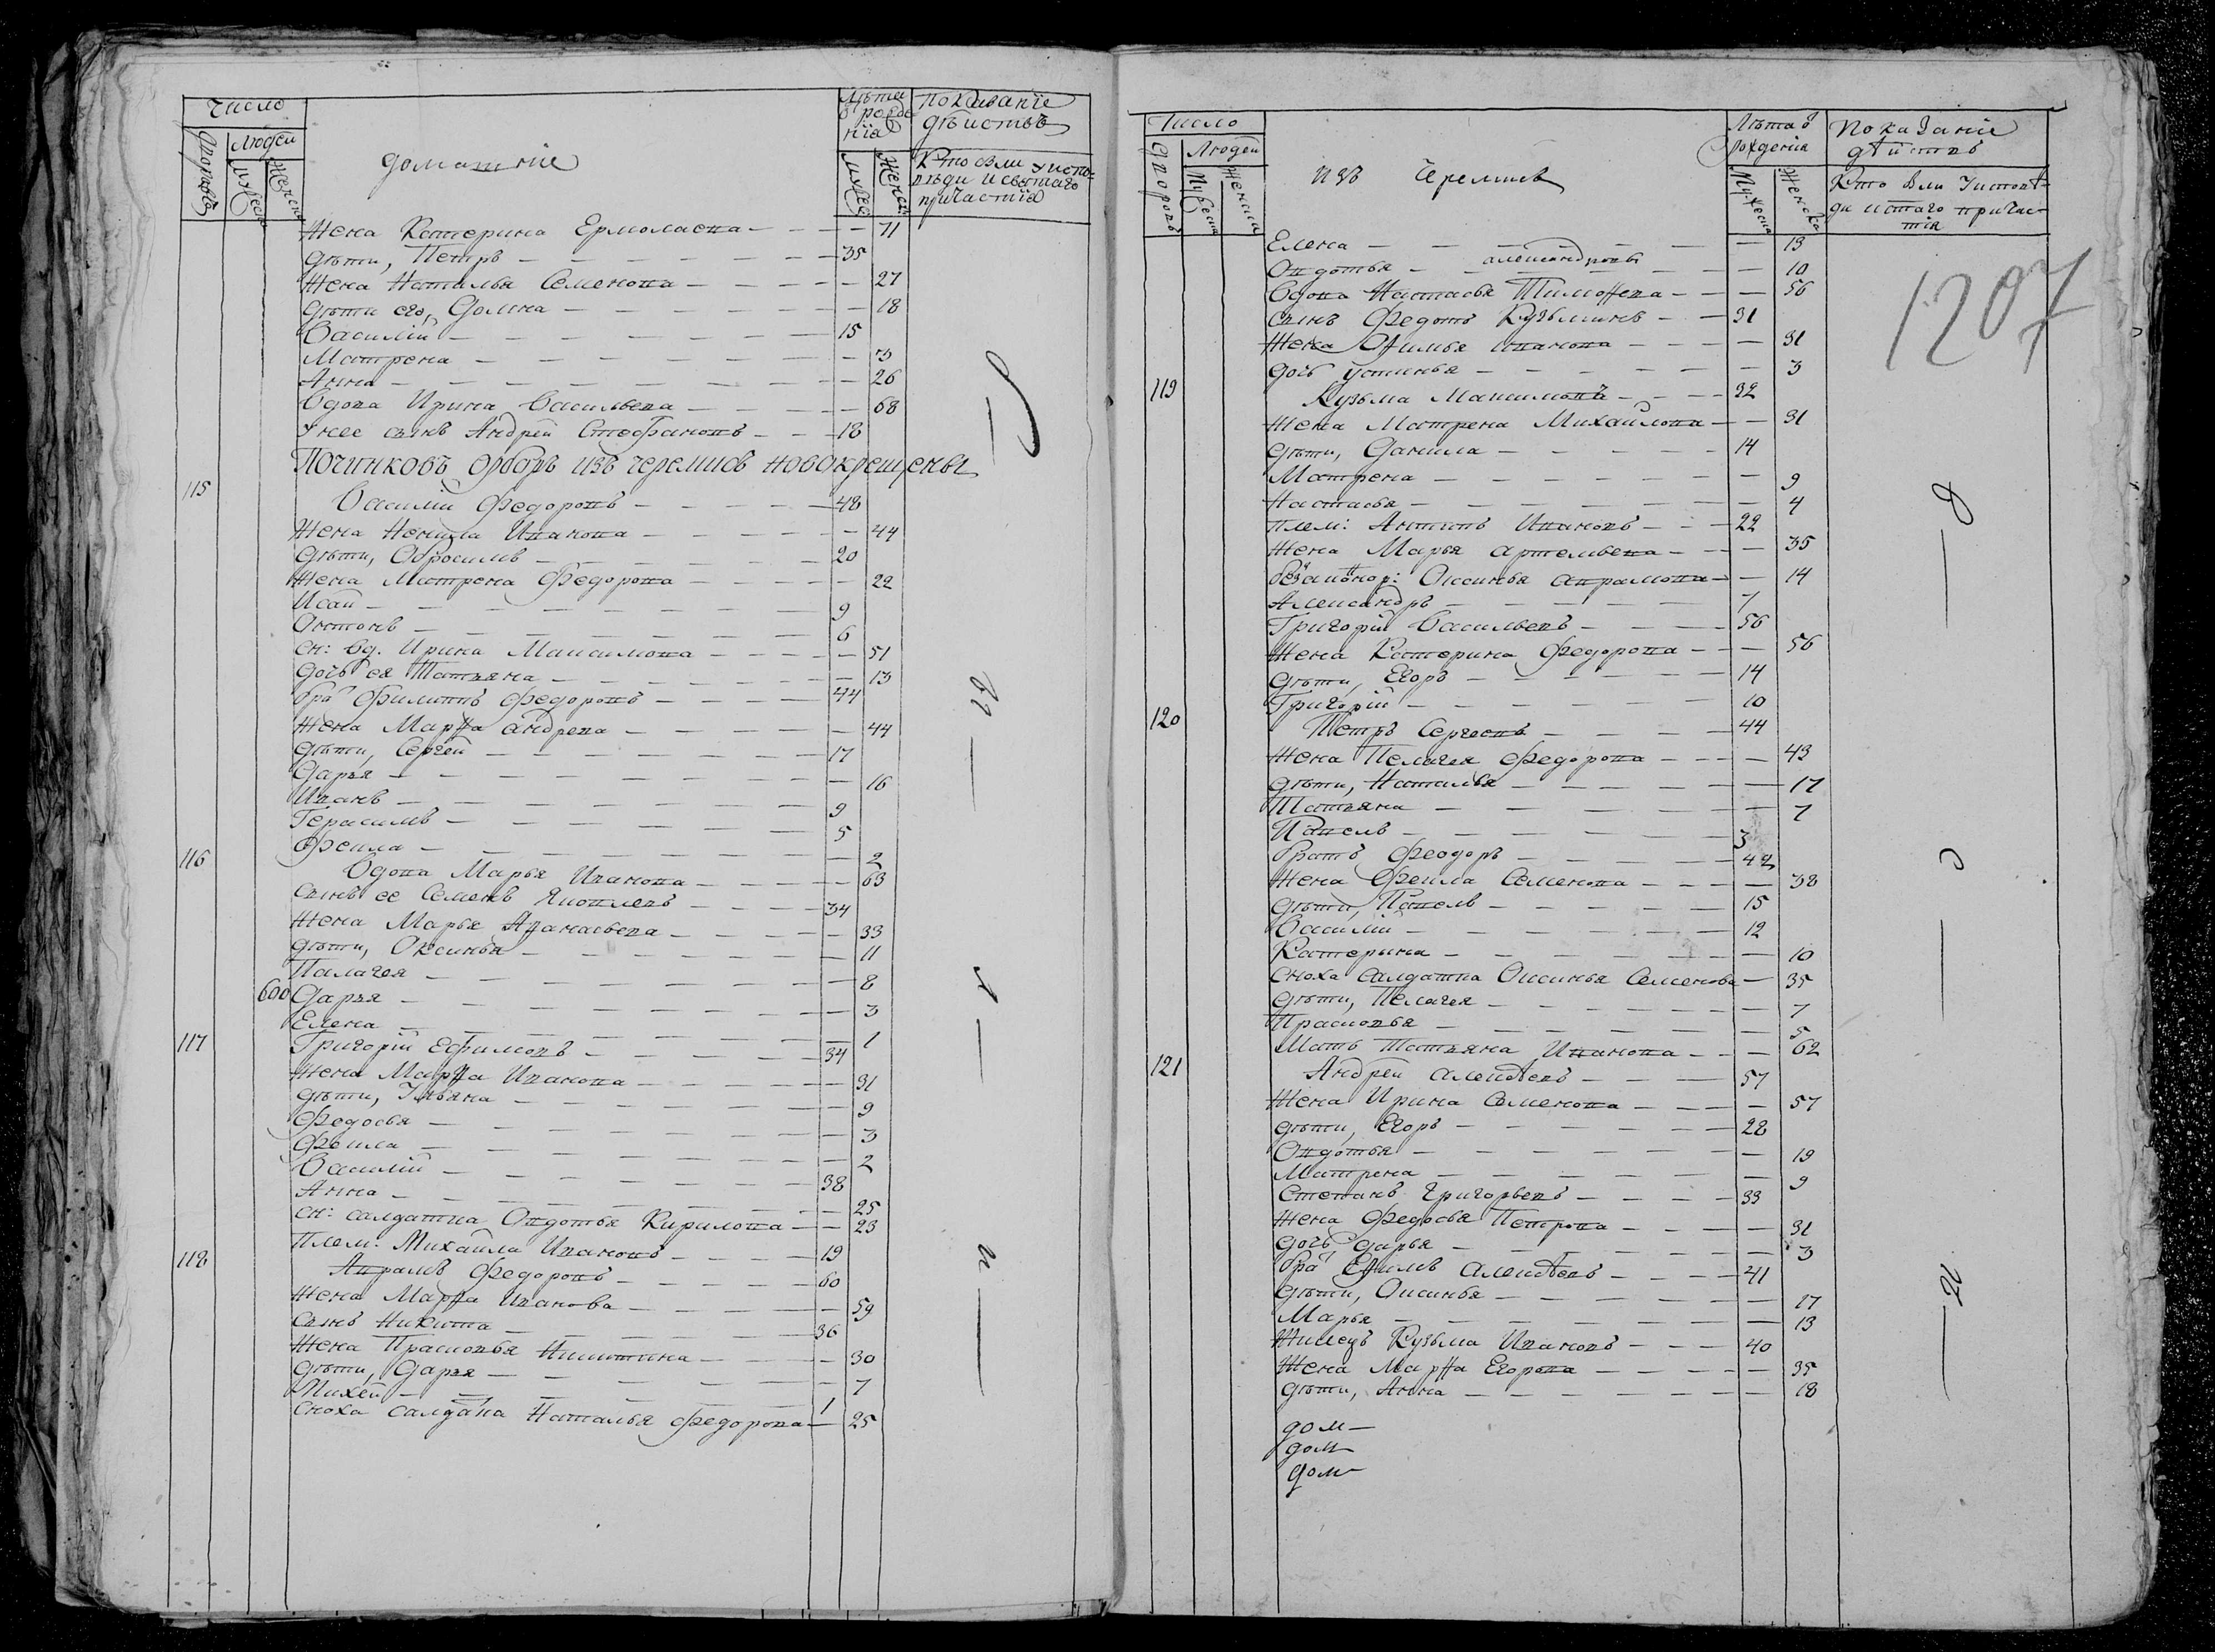 Число
Дворовъ
Людей
Мужеска
Женска
домашніе
Лѣта
ѿ рожде
нїя
Мужес
Женск
показанїе
дѣйствъ
Кто были у испо-
вѣди и святаго
причастїя
Жена Катерина Ермолаева — 71
дѣти, Петръ — 35
Жена Наталья Семенова — 27
дѣти его, Домна — 18
Василій — 15
Матрена — 3
Анна — 26
Вдова Ирина Васильева — 68
У нее сынъ Андрей Стефановъ — 18
Починковъ изъ черемисъ новокрещены
115 Василій Федоровъ — 48
Жена Ненила Иванова — 44
дѣти, Обросимъ — 20
Жена Матрена Федорова — 22
Исай — 9
Антонъ — 6
сн: вд. Ирина Максимова — 51
дочь ея Татьяна — 13
бра Филиппъ Федоровъ — 44
Жена Марѳа Андрева — 44
дѣти, Сергей — 17
Дарья — 16
Иванъ — 9
Герасимъ — 5
Фекла — 2
116 Вдова Марья Иванова — 63
сынъ ее Семенъ Яковлевъ — 34
Жена Марья Аѳанасьева — 33
дѣти, Оксинья — 11
Палагея — 8
600 Дарья — 3
Елена — 1
117 Григорій Ефимовъ — 34
Жена Марѳа Иванова — 31
дѣти, Ульяна — 9
Федосья — 3
Фекла — 2
Василій — 38
Анна — 25
сн: салдатка Овдотья Кирилова — 23
Плем: Михайла Ивановъ — 19
118 Аврамъ Федоровъ — 60
Жена Марѳа Иванова — 59
сынъ Никита — 36
Жена Прасковья Никитина — 30
дѣти, Дарья — 7
Михей — 1
сноха салдатка Наталья Федорова — 25
Число
Дворовъ
Людей
Мужеска
Женска
изъ Черемисъ
Лѣта ѿ
рожденія
Мужеска
Женска
Показаніе
дѣйствъ
Кто были у исповѣ-
ди и стаго причас-
тія
1207
Елена — 13
Овдотья — александровы — 10
Вдова Настасья Тимоѳева — 56
сынъ Федотъ Кузьминъ — 31
Жена Офимья Иванова — 31
дочь Устинья — 3
119 Кузьма Максимовъ — 32
Жена Матрена Михайлова — 31
дѣти, Данила — 14
Матрена — 9
Настасья — 4
плем: Антипъ Ивановъ — 22
Жена Марья Артемьева — 35
Оксинья Аврамова — 14
Александръ — 7
Григорій Васильевъ — 56
Жена Катерина Федорова — 56
дѣти, Егоръ — 14
Григорій — 10
120 Петръ Сергеевъ — 44
Жена Пелагея Федорова — 43
дѣти, Наталья — 17
Татьяна — 7
Павелъ — 3
братъ Феодоръ — 42
Жена Фекла Семенова — 38
дѣти, Павелъ — 15
Василій — 12
Катерына — 10
сноха салдатка Оксинья Семенова — 35
дѣти, Пелагея — 7
Прасковья — 5
Мать Татьяна Иванова — 62
121 Андрей Алексѣевъ — 57
Жена Ирина Семенова — 57
дѣти, Егоръ — 28
Овдотья — 19
Матрена — 9
Степанъ Григорьевъ — 33
Жена Федосья Петрова — 31
дочь Дарья — 3
бра Ефимъ Алексѣевъ — 41
дѣти, Оксинья — 17
Марья — 13
Жилецъ Кузьма Ивановъ — 40
Жена Марѳа Егорова — 35
дѣти, Анна — 18
дом
дом
дом